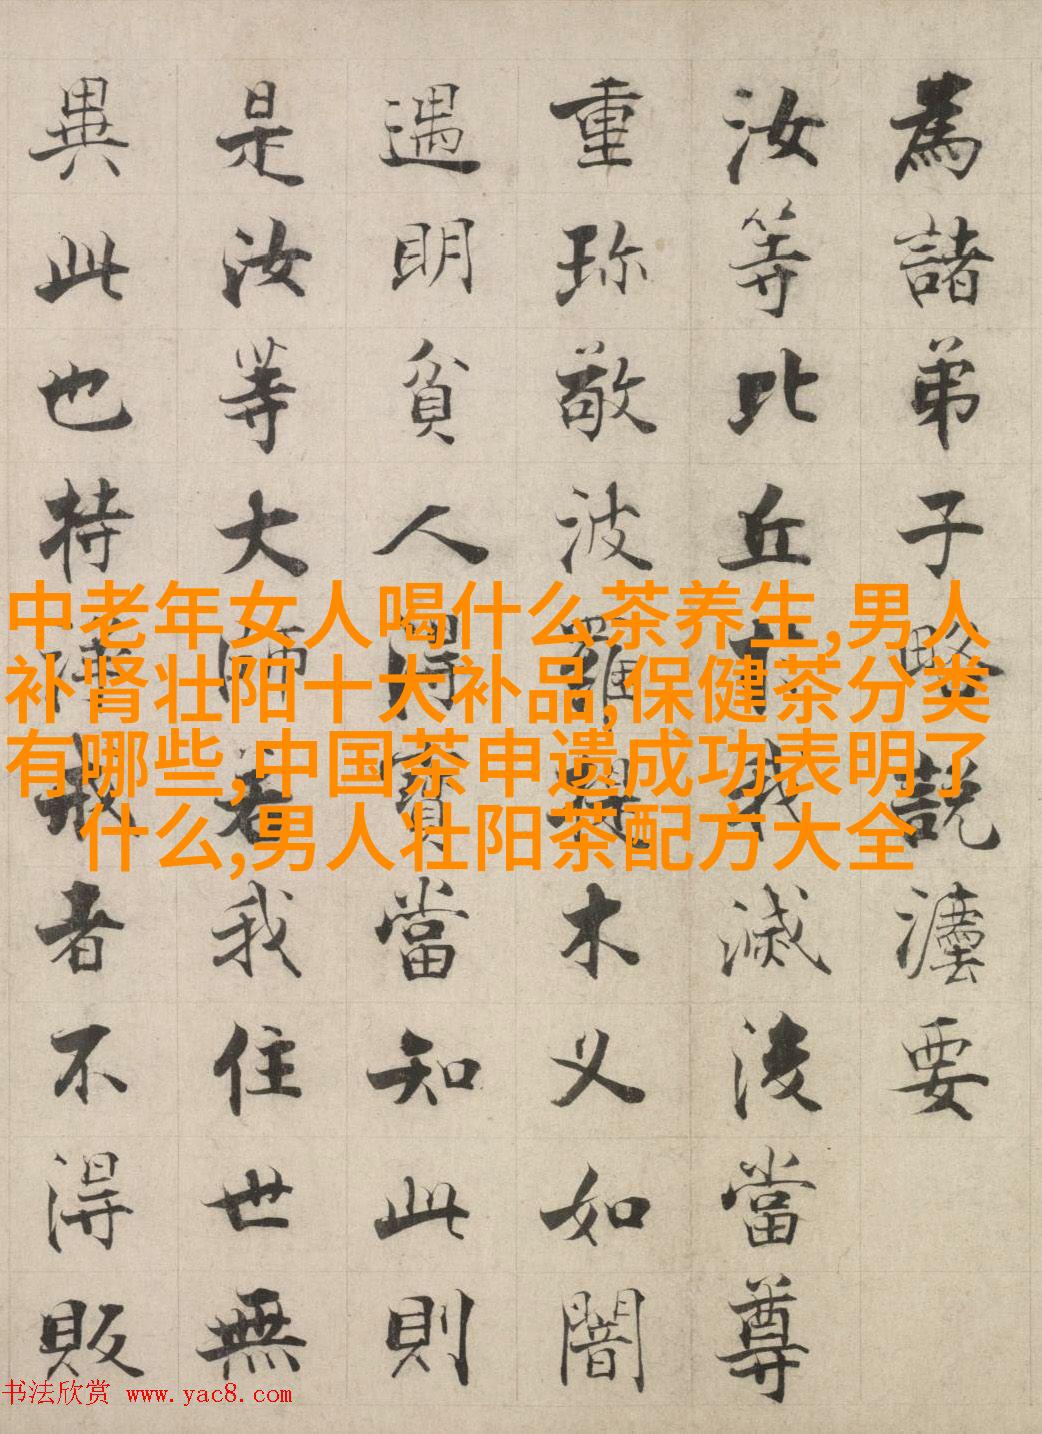 為諸弟子略説灋要
汝等比丘於我滅後當尊
重珎敬波羅提木叉如闇
遇明貧人得寶當知此則
是汝等大師若我住世無
異此也持淨戒者不得販
中老年女人喝什么茶养生,男人
补肾壮阳十大补品,保健茶分类
有哪些,中国茶申遗成功表明了
什么,男人壮阳茶配方大全
书法欣赏 www.yac8.com